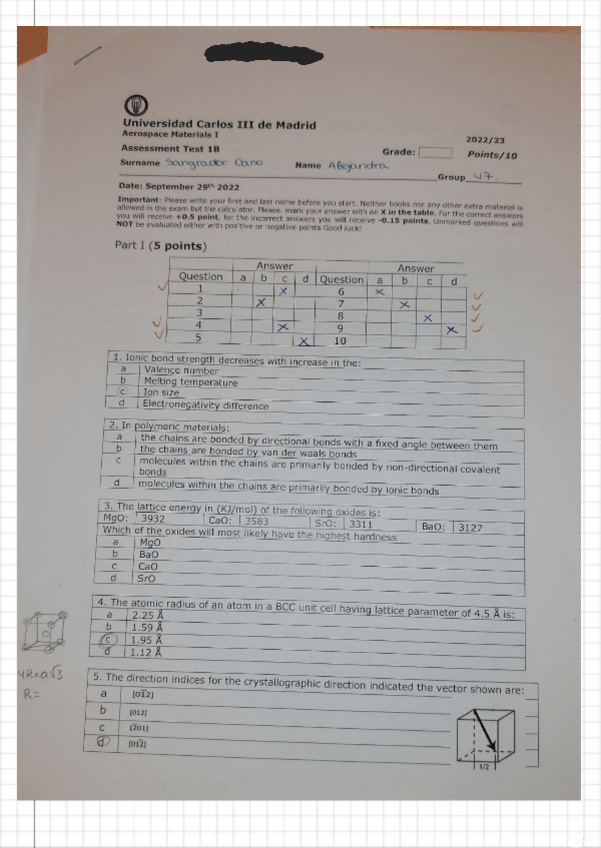 Universidad Carlos III de Madrid
Aerospace Materials I
2022/23
Assessment Test 1B
Grade:
Points/10
Surname Sangrador Cano Name Alejandra
Group 47.
Date: September 29th 2022
Important: Please write your first and last name before you start. Neither books nor any other extra material is
allowed in the exam but the calculator. Please, mark your answer with an X in the table. For the correct answers
you will receive +0.5 point, for the incorrect answers you will receive -0.15 points. Unmarked questions will
NOT be evaluated either with positive or negative points Good luck!
Part I (5 points)
Answer Answer
Question a b c d Question a b c d
1 X 6 X
2 X 7 X
3 8 X
4 X 9 X
5 X 10
1. Ionic bond strength decreases with increase in the:
a Valence number
b Melting temperature
c Ion size
d Electronegativity difference
2. In polymeric materials:
a the chains are bonded by directional bonds with a fixed angle between them
b the chains are bonded by van der waals bonds
c molecules within the chains are primarily bonded by non-directional covalent
bonds
d molecules within the chains are primarily bonded by ionic bonds
3. The lattice energy in (KJ/mol) of the following oxides is:
MgO: 3932 CaO: 3583 SrO: 3311 BaO: 3127
Which of the oxides will most likely have the highest hardness
a MgO
b BaO
c CaO
d SrO
4. The atomic radius of an atom in a BCC unit cell having lattice parameter of 4.5 Å is:
a 2.25 Å
b 1.59 Å
c 1.95 Å
d 1.12 Å
4R=a√3
R=
5. The direction indices for the crystallographic direction indicated the vector shown are:
a [01̅2]
b [012]
c [2̅01]
d [012̅]
1/2